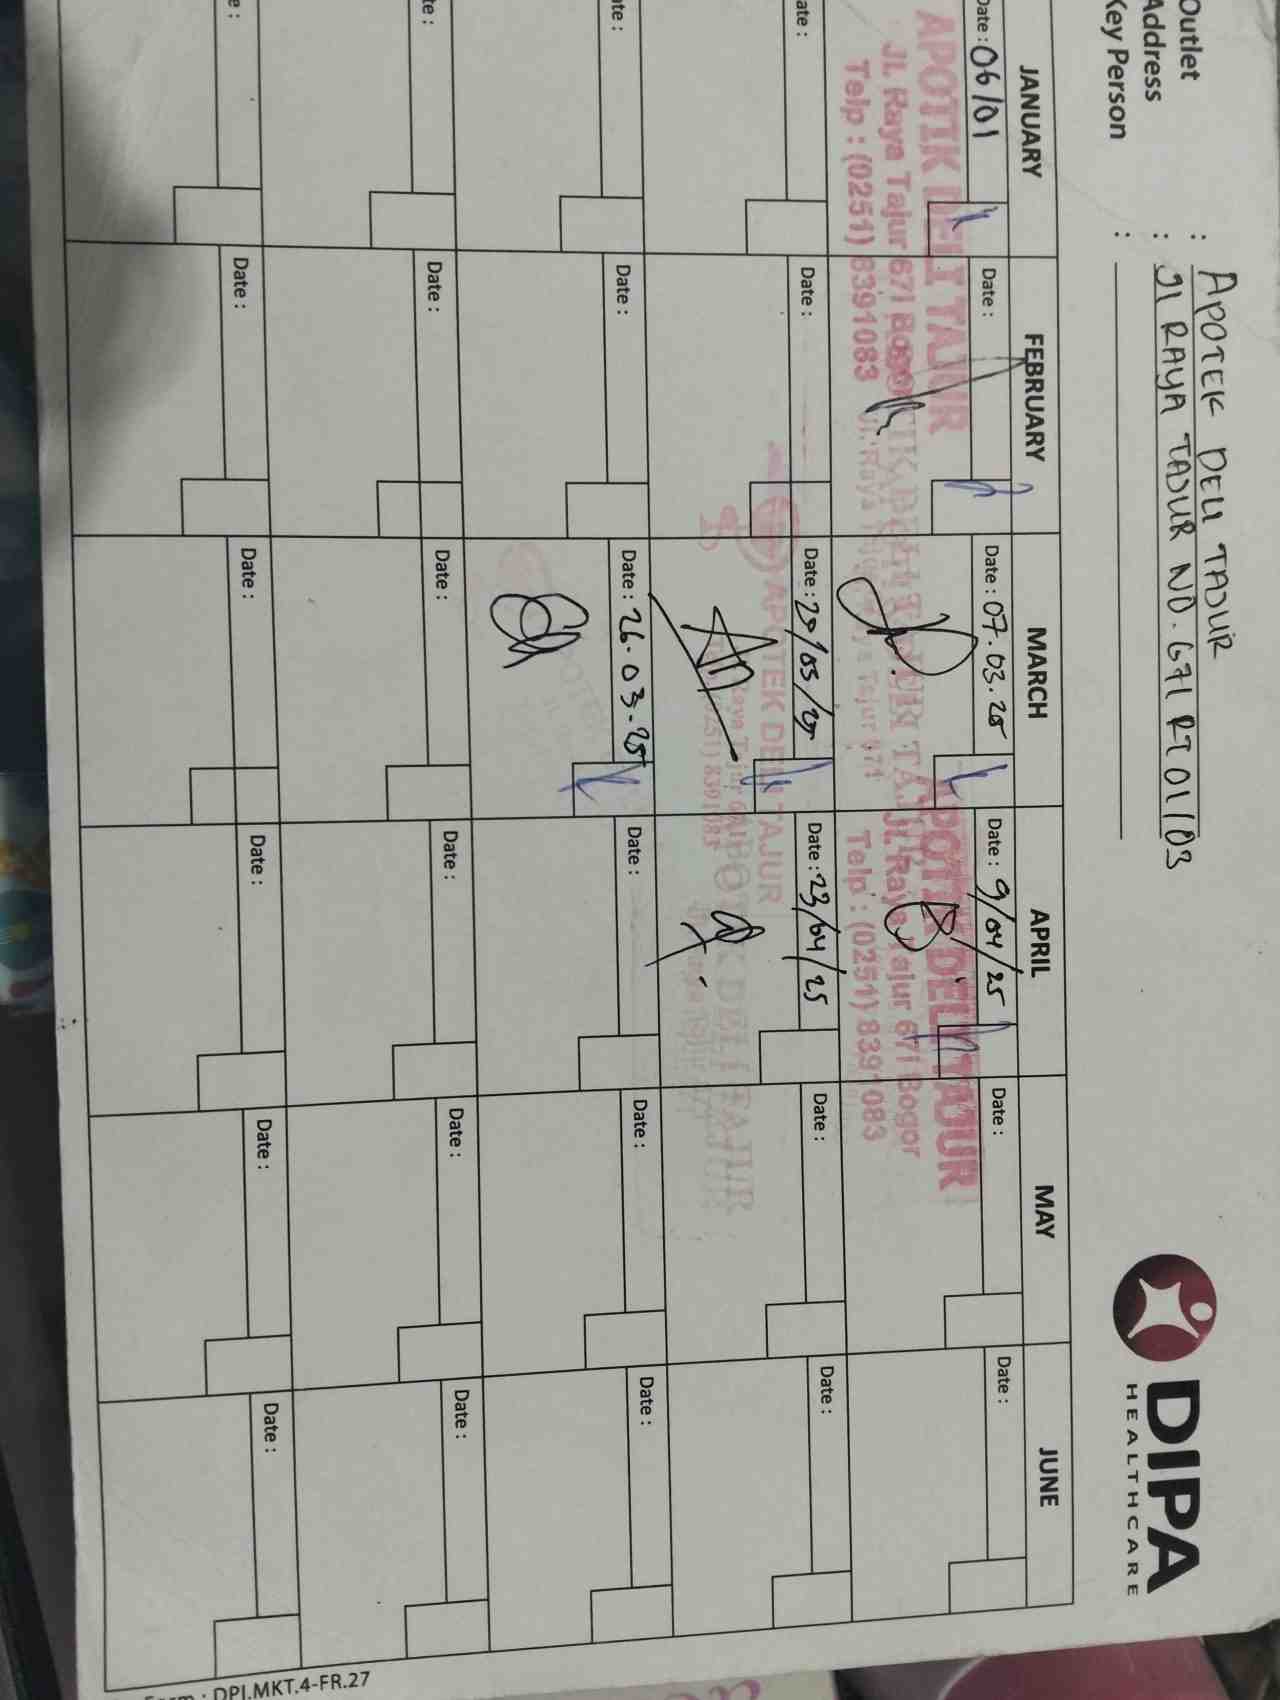 Outlet : APOTEK DELI TAJUR
Address : Jl RAYA TAJUR NO. 671 RT 01/03
Key Person :
DIPA
HEALTHCARE
JANUARY FEBRUARY MARCH APRIL MAY JUNE
Date : 06/01 Date : Date : 07.03.25 Date : 9/04/25 Date : Date :
APOTIK DELI TAJUR
Jl. Raya Tajur 671 Bogor
Telp : (0251) 8391083
APOTIK DELI TAJUR
Jl. Raya Tajur 671 Bogor
Telp : (0251) 8391083
ate : Date : Date : 20/03/25 Date : 23/04/25 Date : Date :
APOTEK DELI TAJUR
Raya Tajur
(0251) 8391083
APOTIK DELI TAJUR
ate : Date : Date : 26.03.25 Date : Date : Date :
te : Date : Date : Date : Date : Date :
e : Date : Date : Date : Date : Date :
Form : DPI.MKT.4-FR.27